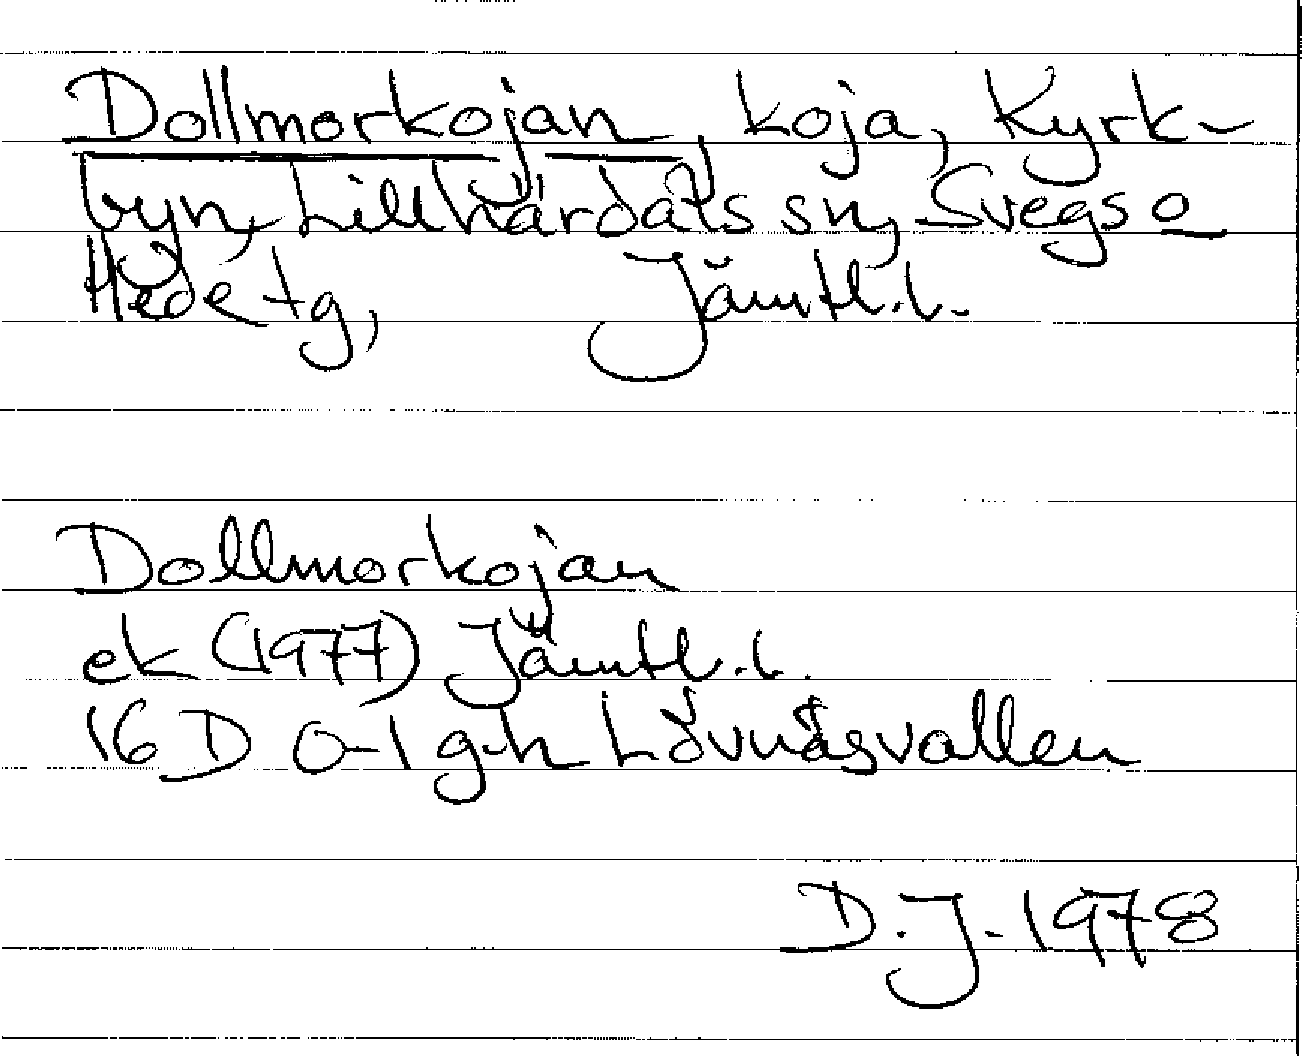 Dollmorkojan, koja, Kyrk-
byn, Lillhärdals sn, Svegs o
Hede tg, Jämtl.l.
Dollmorkojan
ek (1977) Jämtl.l.
16 D 0-1 g-h Lövnäsvallen
D.J. 1978